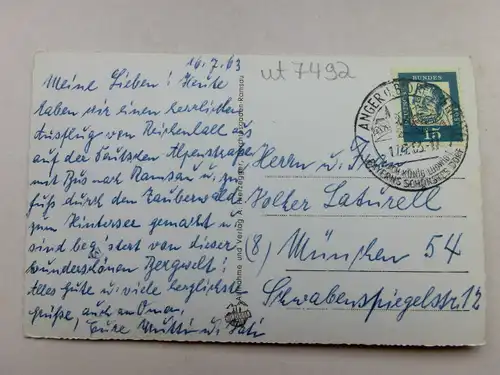 16.7.63
ut7492
Meine Lieben! Heute
haben wir einen herrlichen
Ausflug von Reichenhall aus
auf der Deutschen Alpenstraße
mit Bus nach Ramsau u. zu
Fuß durch den Zauberwald
zum Hintersee gemacht u.
sind begeistert von dieser
wunderschönen Bergwelt!
Alles Gute u. viele herzlichste
Grüße, auch an Oma,
Eure Mutti u. Vati
Aufnahme und Verlag
Ramsau
DEUTSCHE BUNDESPOST
15
ANGER
17.7.63
KÖNIG LUDWIG
BAYERNS SCHÖNSTES DORF
Herrn u. Frau
Volter Laturell
(8) München 54
Schwabenspiegelstr. 12